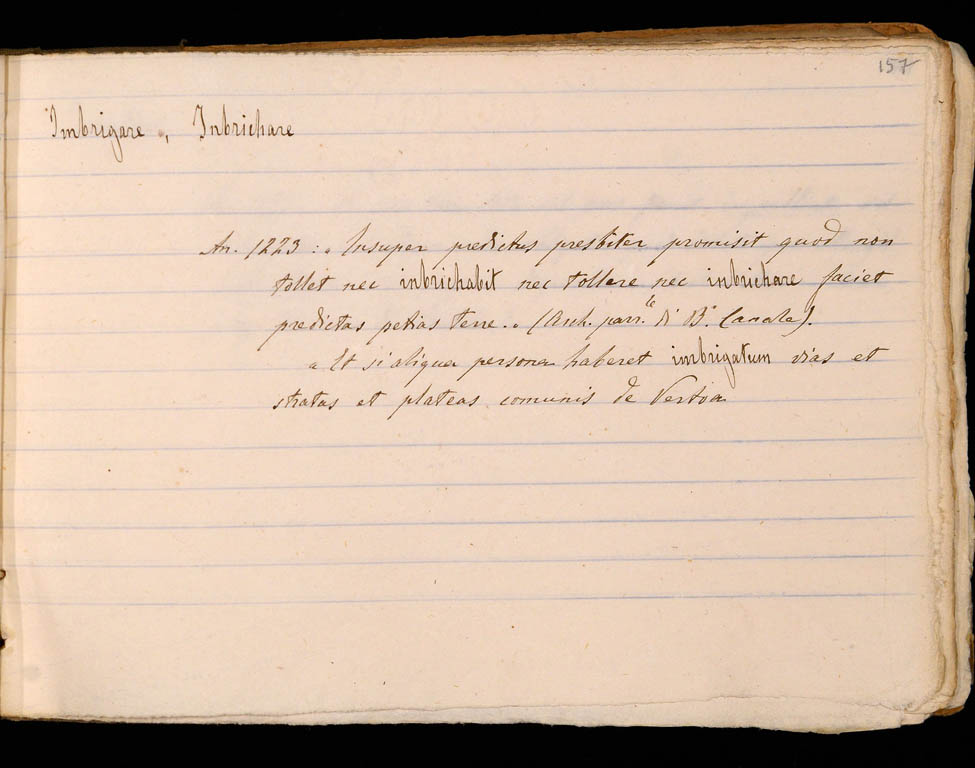 157
Imbrigare, Inbrichare
An. 1223: „ Insuper predictus presbiter promisit quod non
tollet nec inbrichabit nec tollere nec inbrichare faciet
predictas petias terre. „ (Arch. parr.le di B. Canale).
„ Et si aliqua persona haberet imbrigatum vias et
stratas et plateas comunis de Vertoa